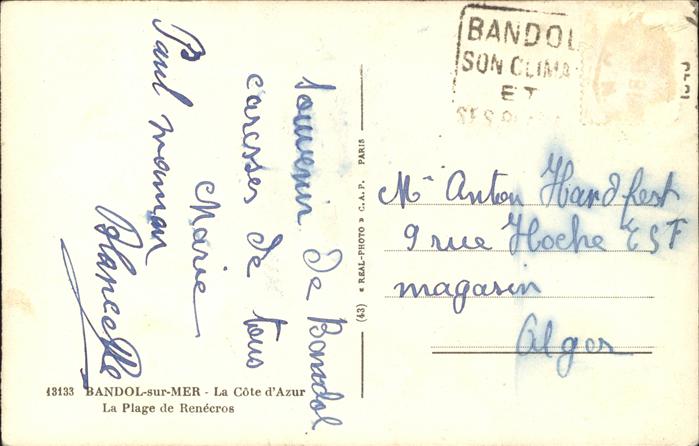 Souvenir de Bandol
caresses de tous
Marie
Paul maman
Blancette
BANDOL
SON CLIMA
ET
Mr Anton Hardfest
9 rue Hoche ESF
magasin
Alger
(43) « REAL-PHOTO » C.A.P. PARIS
13133 BANDOL-sur-MER - La Côte d'Azur
La Plage de Renécros